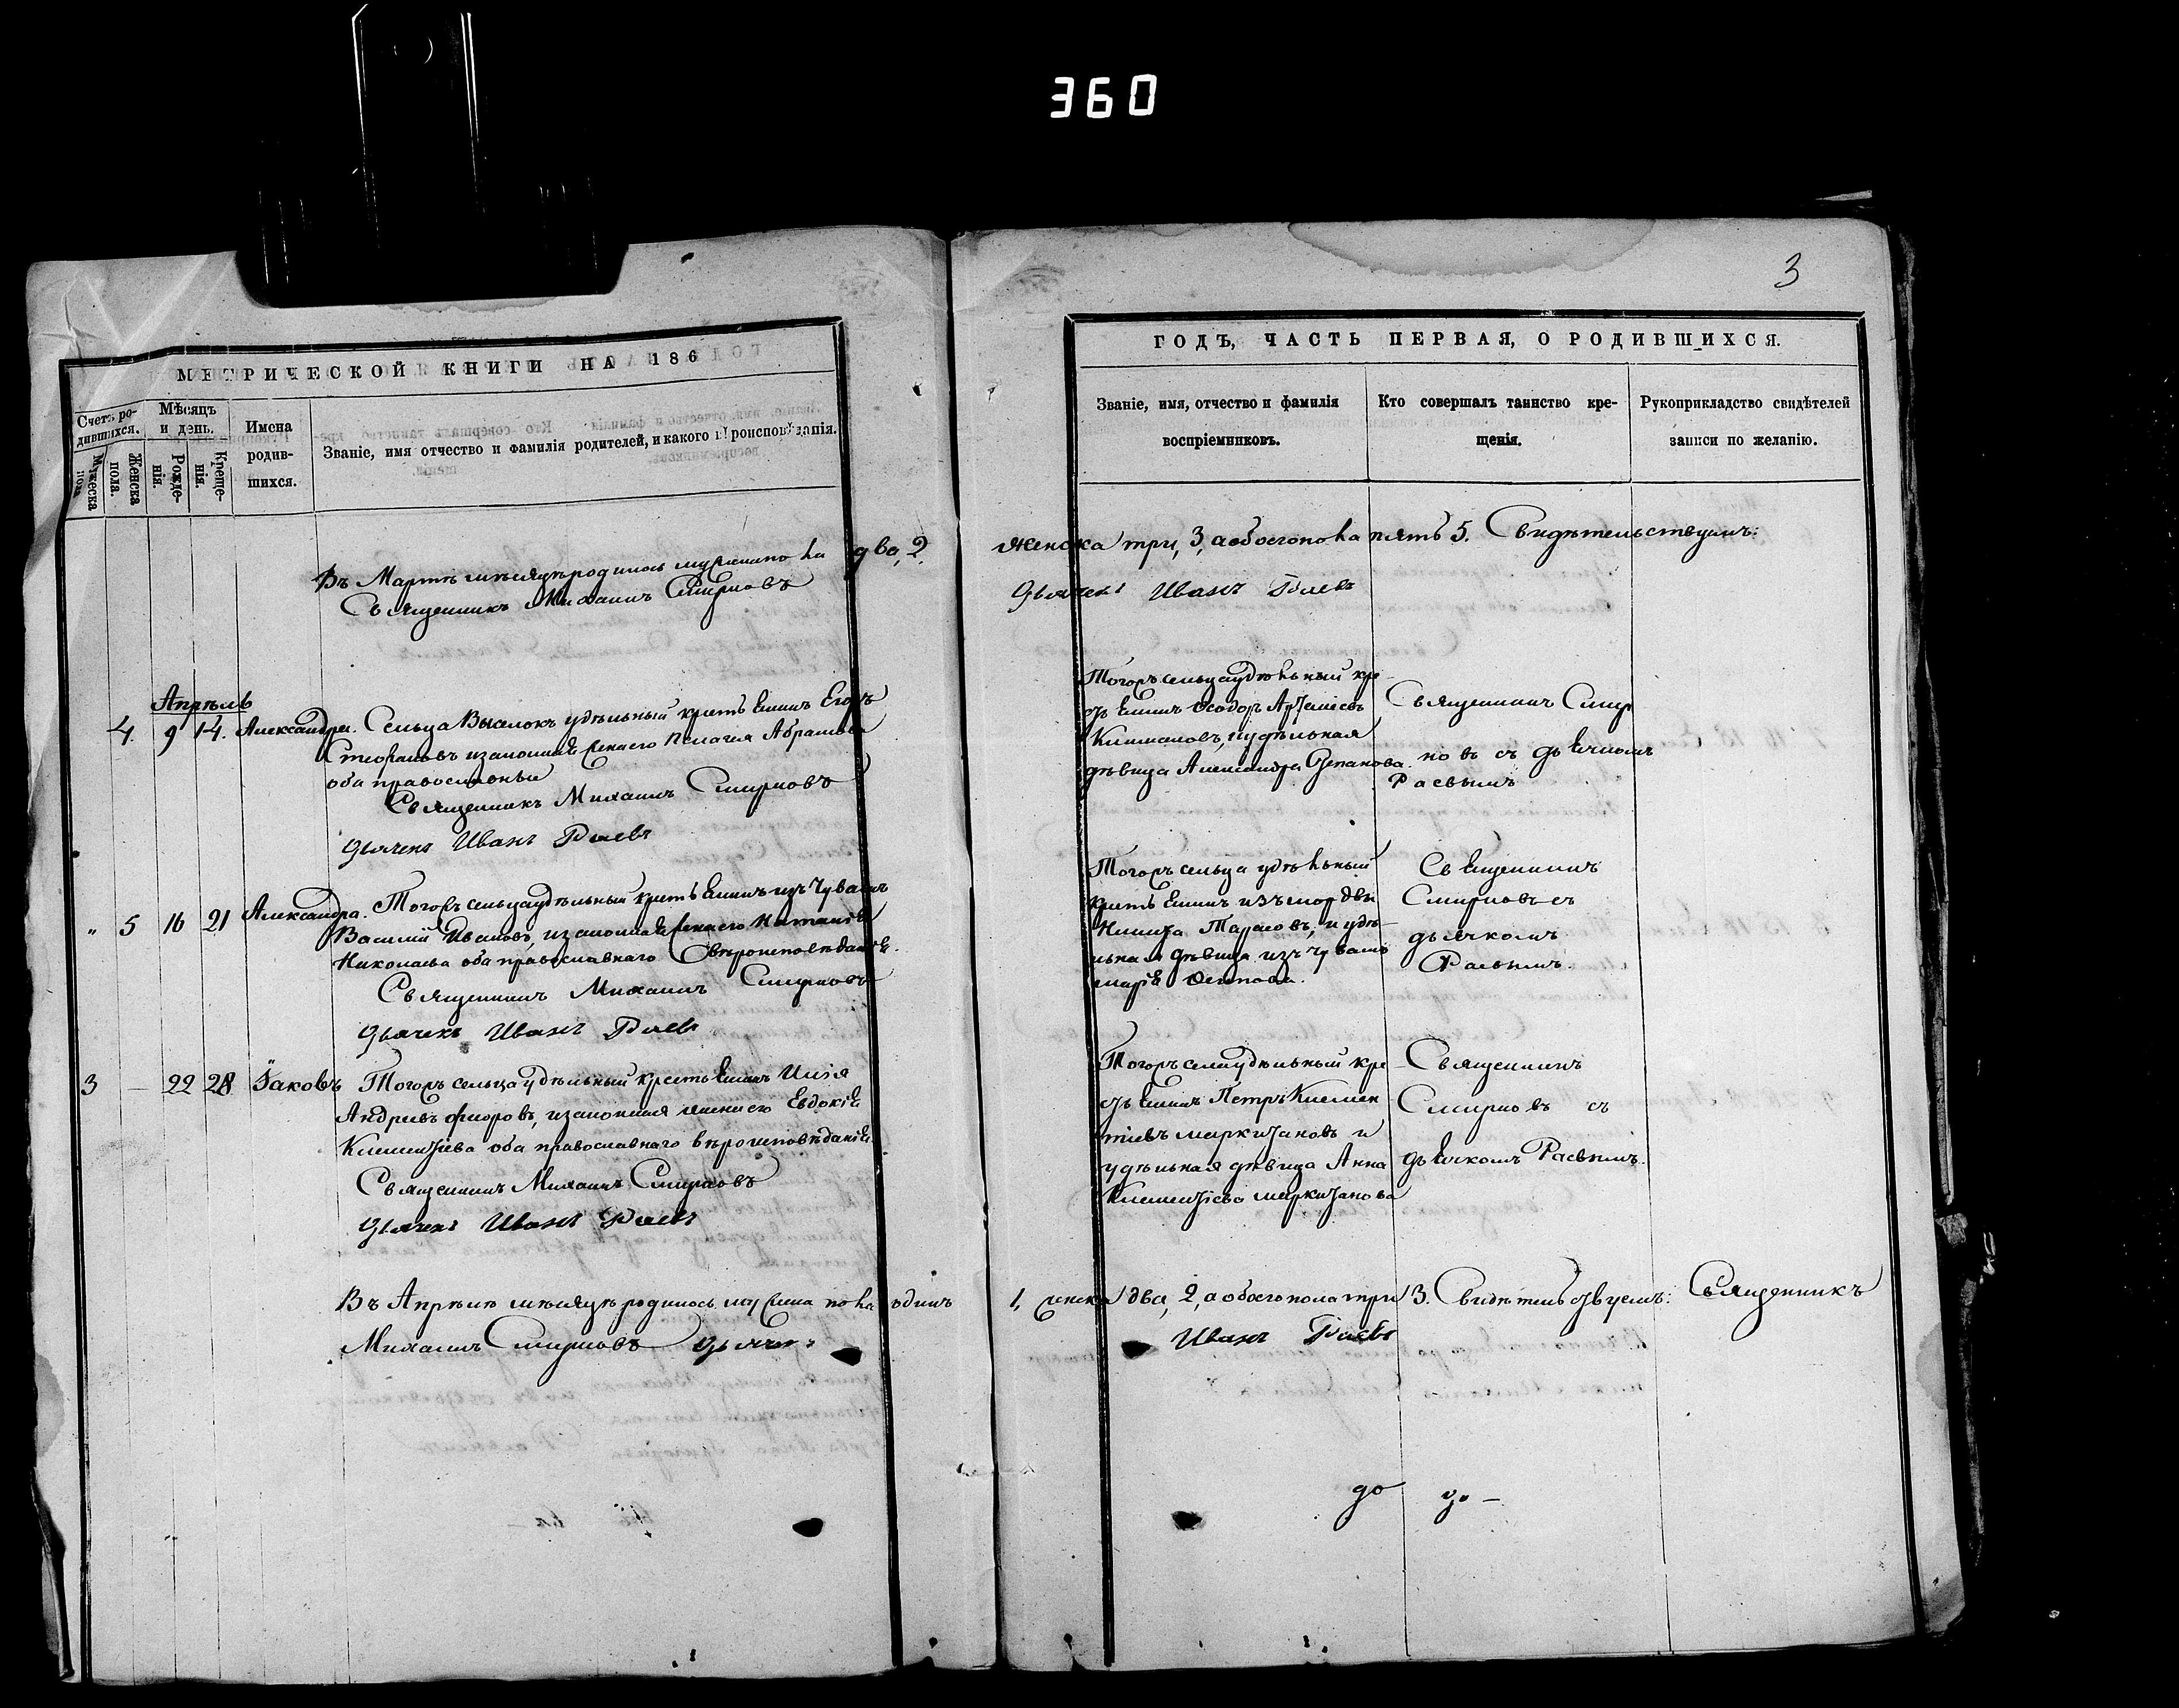 360
3
МЕТРИЧЕСКОЙ КНИГИ НА 186
Счетъ ро-
дившихся.
Мужеска
пола
Женска
пола.
Мѣсяцъ
и день.
Рожде-
нія.
Креще-
нія.
Имена
родив-
шихся.
Званіе, имя отчество и фамилія родителей, и какого вѣроисповѣданія.
Въ Мартѣ мѣсяцѣ родилось мужеска пола два, 2
Священникъ Михаилъ Смирновъ
Апрѣль
4. 9 14. Александра. Сельца Выселокъ удѣльный крестьянинъ Егоръ
Стефановъ и законная жена его Пелагея Абрамова
оба православные
Священникъ Михаилъ Смирновъ
Дьячекъ Иванъ Раевъ
" 5 16 21 Александра. Тогожъ сельца удѣльный крестьянинъ изъ чувашъ
Василій Ивановъ, и законная жена его Наталія
Николаева оба православнаго вѣроисповѣданія.
Священникъ Михаилъ Смирновъ
Дьячекъ Иванъ Раевъ
3 — 22 28 Іаковъ Тогожъ сельца удѣльный крестьянинъ Илія
Андреевъ Флоровъ, и законная жена его Евдокія
Климентіева оба православнаго вѣроисповѣданія.
Священникъ Михаилъ Смирновъ
Дьячекъ Иванъ Раевъ
Въ Апрѣлѣ мѣсяцѣ родилось мужеска пола одинъ
Михаилъ Смирновъ Дьячекъ
ГОДЪ, ЧАСТЬ ПЕРВАЯ, О РОДИВШИХСЯ.
Званіе, имя, отчество и фамилія
воспріемниковъ.
Кто совершалъ таинство кре-
щенія.
Рукоприкладство свидѣтелей
записи по желанію.
женска три, 3, а обоего пола пять 5. Свидѣтельствуемъ:
Дьячекъ Иванъ Раевъ
Тогожъ сельца удѣльный кре-
стьянинъ Ѳеодоръ Артеміевъ
и удѣльная
дѣвица Александра Степанова.
Священникъ Смир
новъ съ дьячкомъ
Раевымъ
Тогожъ сельца удѣльный
крестьянинъ изъ мордвы
Никита Тарасовъ, и удѣ-
льная дѣвица изъ чувашъ
Марія Осипова.
Священникъ
Смирновъ съ
дьячкомъ
Раевымъ.
Тогожъ села удѣльный кре
стьянинъ Петръ Климен
тіевъ Маркитановъ и
удѣльная дѣвица Анна
Климентіева Маркитанова
Священникъ
Смирновъ съ
дьячкомъ Раевымъ.
1, женска два, 2, а обоего пола три 3. Свидѣтельствуемъ: Священникъ
Иванъ Раевъ